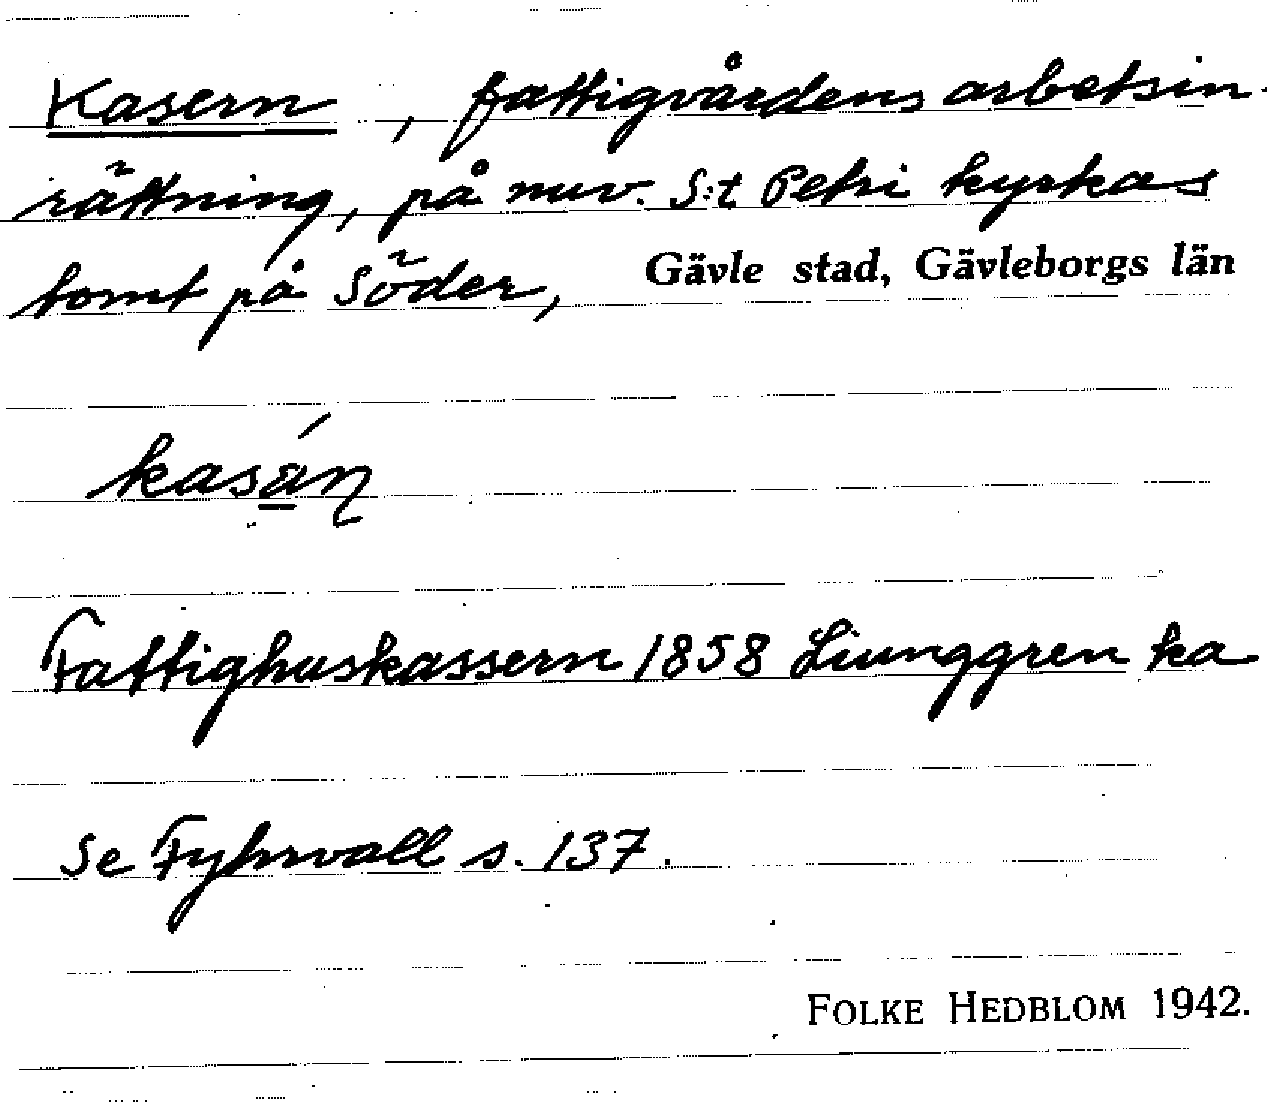 Kasern, fattigvårdens arbetsin-
rättning, på nuv. S:t Petri kyrkas
tomt på Söder, Gävle stad, Gävleborgs län
kasá̱ꞃ
Fattighuskassern 1858 Liunggren ka
Se Fyhrvall s. 137.
FOLKE HEDBLOM 1942.